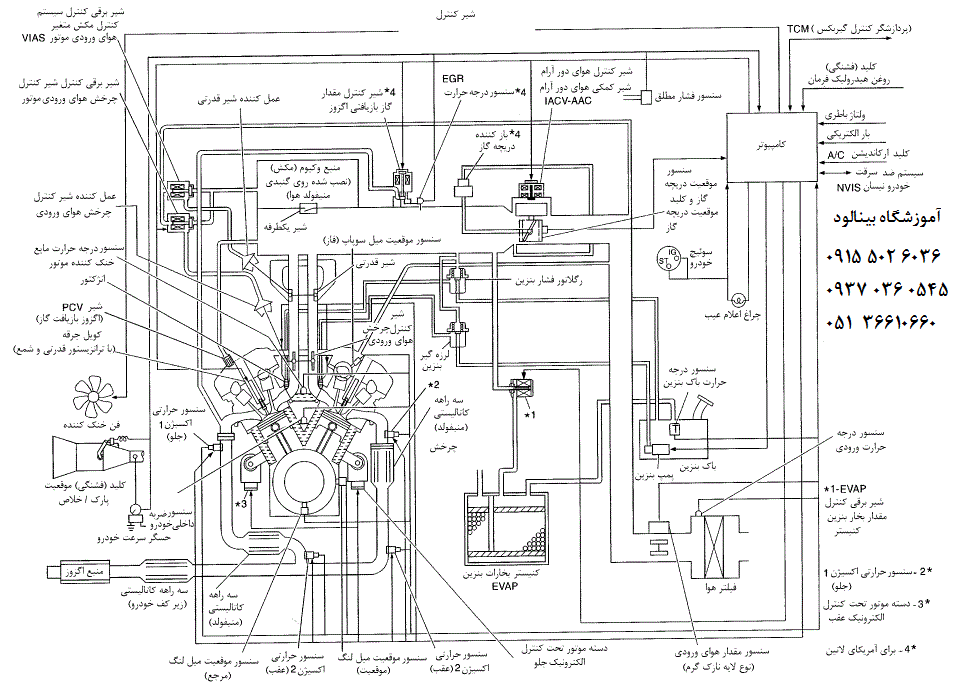 شیر برقی کنترل سیستم
کنترل مکش متغیر
هوای ورودی موتور VIAS
شیر برقی کنترل شیر کنترل
چرخش هوای ورودی موتور
عمل کننده شیر قدرتی
عمل کننده شیر کنترل
چرخش هوای ورودی
سنسور درجه حرارت مایع
خنک کننده موتور
انژکتور
شیر PCV
(اگزوز بازیافت گاز)
کویل جرقه
(با ترانزیستور قدرتی و شمع)
فن خنک کننده
کلید (فشنگی) موقعیت
پارک / خلاص
سنسور حرارتی
اکسیژن 1
(جلو)
سنسور ضربه
داخلی خودرو
حسگر سرعت خودرو
*3
منبع اگزوز
سه راهه کاتالیستی
(زیر کف خودرو)
سه راهه
کاتالیستی
(منیفولد)
سنسور موقعیت میل لنگ
(مرجع)
سنسور حرارتی
اکسیژن 2 (عقب)
سنسور موقعیت میل لنگ
(موقعیت)
سنسور حرارتی
اکسیژن 2 (عقب)
دسته موتور تحت کنترل
الکترونیک جلو
شیر کنترل
*4 شیر کنترل مقدار
گاز بازیافتی اگزوز
EGR
*4 سنسور درجه حرارت
شیر کنترل هوای دور آرام
شیر کمکی هوای دور آرام
IACV-AAC
سنسور فشار مطلق
*4 باز کننده
دریچه گاز
منبع وکیوم (مکش)
(نصب شده روی گنبدی
منیفولد هوا)
شیر یکطرفه
سنسور موقعیت میل سوپاپ (فاز)
شیر قدرتی
رگلاتور فشار بنزین
شیر
کنترل چرخش
هوای ورودی
لرزه گیر
بنزین
*2
سه راهه
کاتالیستی
(منیفولد)
چرخش
*1
کنیستر بخارات بنزین
EVAP
سنسور
موقعیت دریچه
گاز و کلید
موقعیت دریچه
گاز
سوئیچ
خودرو
IG
ST
چراغ اعلام عیب
کامپیوتر
TCM (پردازشگر کنترل گیربکس)
کلید (فشنگی)
روغن هیدرولیک فرمان
ولتاژ باطری
بار الکتریکی
کلید ارکاندیشن A/C
سیستم ضد سرقت
خودرو نیسان NVIS
آموزشگاه بینالود
۰۹۱۵ ۵۰۲ ۶۰۳۶
۰۹۳۷ ۰۳۶ ۰۵۴۵
۰۵۱ ۳۶۶۱۰۶۶۰
سنسور درجه
حرارت باک بنزین
باک بنزین
پمپ بنزین
سنسور درجه
حرارت ورودی
*1-EVAP
شیر برقی کنترل
مقدار بخار بنزین
کنیستر
فیلتر هوا
سنسور مقدار هوای ورودی
(نوع لایه نازک گرم)
*2 - سنسور حرارتی اکسیژن 1
(جلو)
*3 - دسته موتور تحت کنترل
الکترونیک عقب
*4 - برای آمریکای لاتین